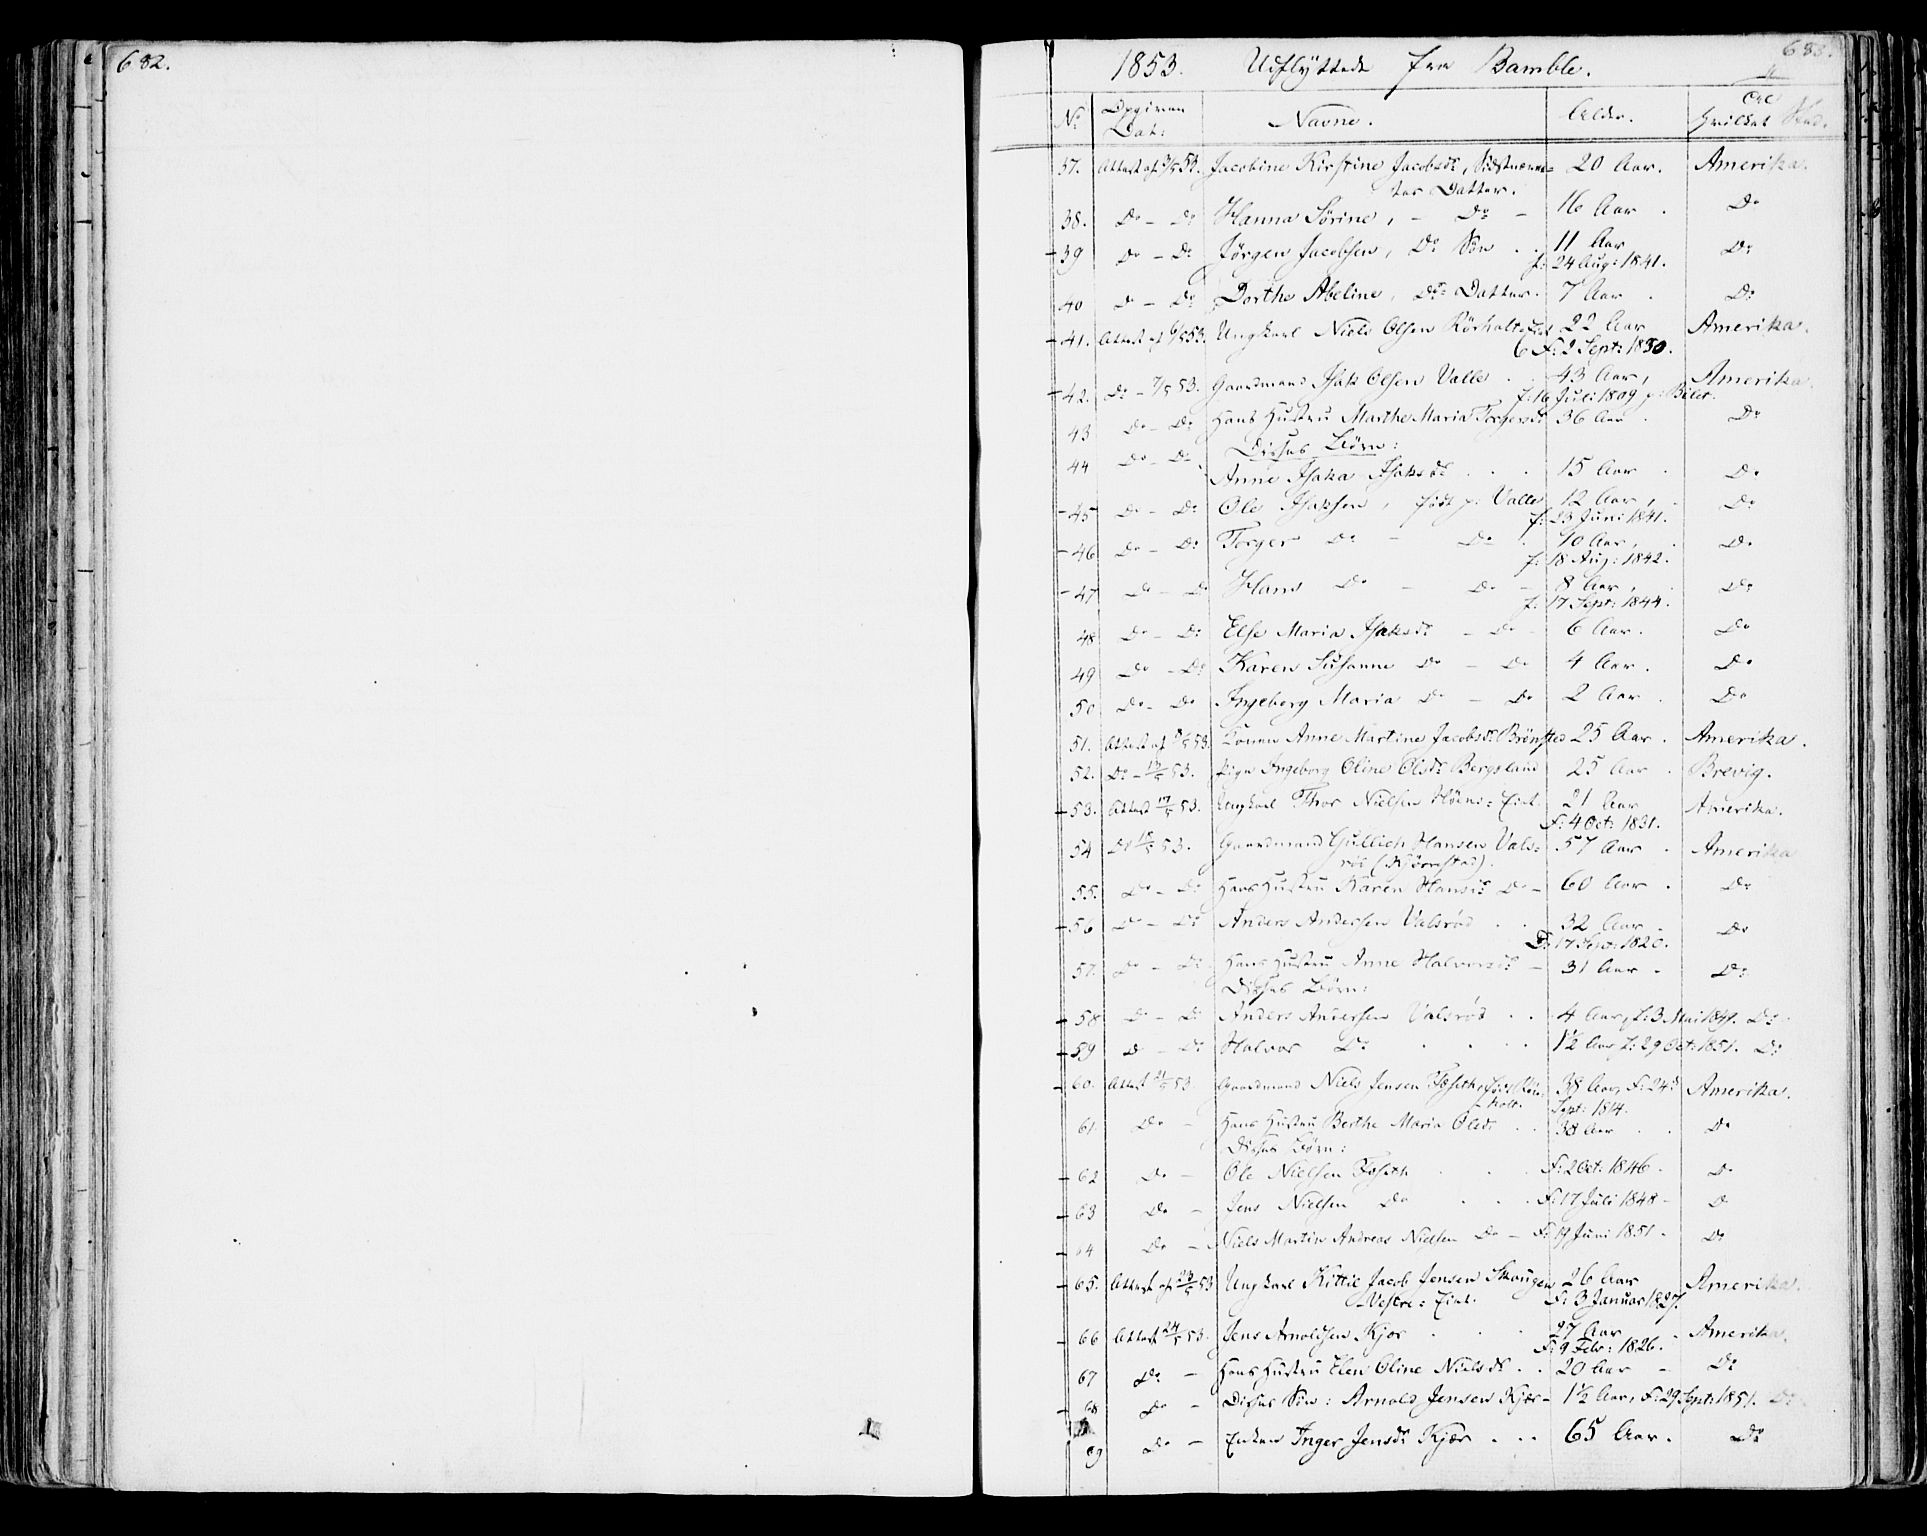 682.
683.
1853. Udflyttede fra Bamble.
No Opgiven Dat: Navne. Alder. Til hvilket Sted.
37. Attest af 3/5 53. Jacobine Kirstine Jacobsdr, Sidstnævn= 20 Aar. Amerika.
tes Datter.
38. Do - Do Hanna Sørine, - Do - 16 Aar. Do
39 Do - Do Jørgen Jacobsen, Ds Søn . . 11 Aar Do
f: 24 Aug: 1841.
40 Do - Do Dorthe Abeline, Ds Datter. 7 Aar . Do
41. Attest af 6/5 53. Ungkarl Niels Olsen Rörholt 22 Aar Amerika.
F: 2 Sept: 1830.
42. Do - 7/5 53. Gaardmand Isak Olsen Valle . 43 Aar, Amerika.
f: 16 Juli 1809
43 Do - Do Hans Hustru Marthe Maria Torgersdr 36 Aar . Do
Disses Börn:
44 Do - Do Anne Isaka Isaksdr . . . 15 Aar . Do
45 Do - Do Ole Isaksen, født p. Valle 12 Aar, . Do
f: 23 Juni 1841.
46 Do - Do Torger Do - Do . 10 Aar, . Do
f: 18 Aug: 1842.
47 Do - Do Hans Do - Do - 8 Aar, . Do
f: 17 Sept: 1844.
48 Do - Do Else Maria Isaksdr - Do - 6 Aar. Do
49 Do - Do Karen Susanne Do - Do 4 Aar. Do
50 Do - Do Ingeborg Maria Do - Do 2 Aar . Do
51. Attest af 8/5 53. Konen Anne Martine Jacobsdr Brönsted 25 Aar . Amerika.
52. Do - 13/5 53. Pige Ingeborg Oline Olsdr Bergsland 25 Aar . Brevig.
53. Attest 17/5 53. Ungkarl Thor Nielsen 21 Aar Amerika.
F: 4 Oct: 1831.
54 Do 18/5 53. Gaardmand Gullich Hansen Vals= 57 Aar . Amerika
röd (Kjörrestad).
55. Do - Do Hans Hustru Karen Hansdr Do - 60 Aar . Do
56 Do - Do Anders Andersen Valsrød . . 32 Aar . Do
1820.
57. Do - Do Hans Hustru Anne Halvorsdr - 31 Aar - Do
Disses Börn:
58 Do - Do Anders Andersen Valsrød . . 4 Aar, f: 3 Mai 1849. Do
59 Do - Do Halvor Do . . . . 1½ Aar f: 29 Oct: 1851. Do
60. Attest 21/5 53. Gaardmand Niels Jensen Foseth, født Rör= 38 Aar, F: 24de Amerika.
holt. Sept: 1814.
61. Do - Hans Hustru Berthe Maria Olsdr . . 38 Aar . . Do
Disses Börn:
62 Do - Ole Nielsen Foseth . . . F: 2 Oct: 1846 . Do
63 Do - Jens Nielsen Do . . . F: 17 Juli 1848 - D
64 Do - Niels Martin Andreas Nielsen Do - F: 19 Juni 1851 . Do
65. Attest af 23/5 53 Ungkarl Kittil Jacob Jensen Skougen 26 Aar Amerika.
Vestre = Eiet. F: 3 Januar 1827.
66 Attest 24/5 53. Jens Arnoldsen Kjær . . . 27 Aar . Amerika.
F: 9 Febr: 1826.
67 Do - Hans Hustru Elen Oline Nielsdr . . 20 Aar - Do
68 Do - Disses Søn: Arnold Jensen Kjær - 1½ Aar, F: 29 Sept: 1851. Do
69 Do - Enken Inger Jensdr Kjær . . . 65 Aar . Do